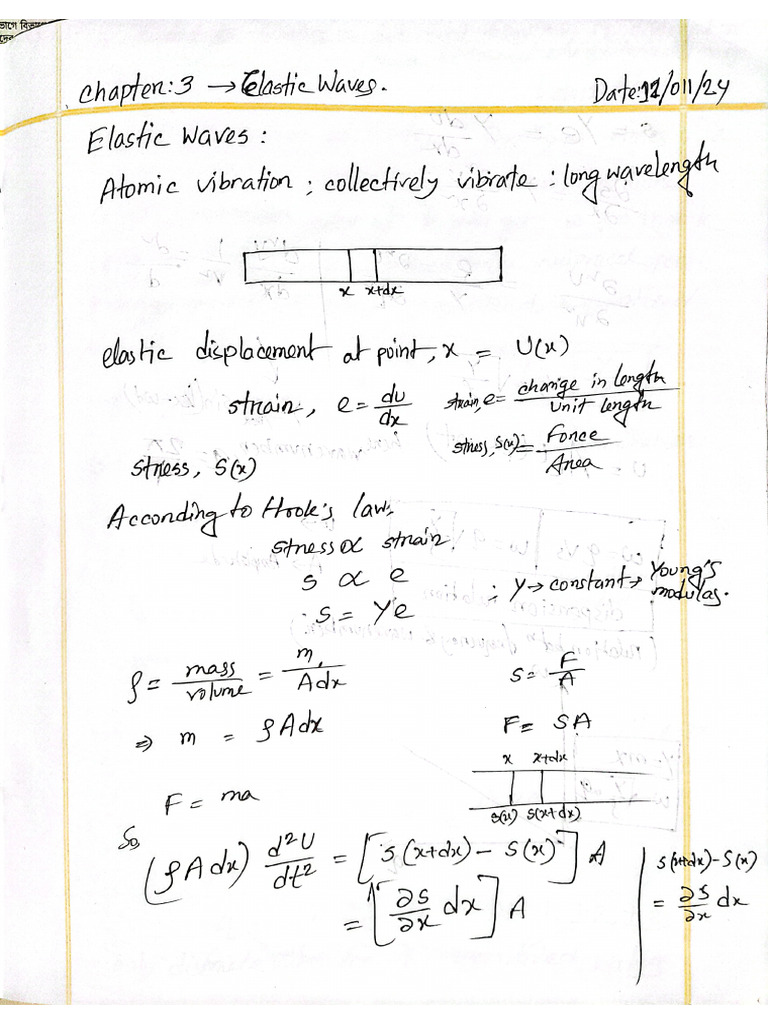 Chapter: 3 → Elastic Waves.
Date: 12/011/24
Elastic Waves :
Atomic vibration ; collectively vibrate : long wavelength
x x+dx
elastic displacement at point, x = U(x)
strain, e = du/dx strain, e = change in length / unit length
stress, S(x) stress, S(x) = Force / Area
According to Hook's law,
stress ∝ strain
S ∝ e
; Y → constant → Young's modulas.
S = Ye
ρ = mass/volume = m/Adx S = F/A
⇒ m = ρAdx F = SA
x x+dx
F = ma
S(x) S(x+dx)
So,
(ρAdx) d²U/dt² = [S(x+dx) - S(x)] A S(x+dx) - S(x)
= [∂S/∂x dx] A = ∂S/∂x dx